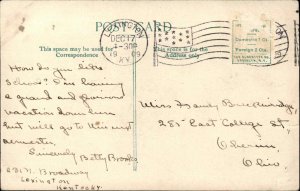 POST CARD
LEXINGTON
DEC 17
1-30P
1909
KY.
This space may be used for
Correspondence
This space is for the
Address only
Domestic 1 Ct.
Foreign 2 Cts.
How do you like
I'm having
a grand and
vacation down here
but will go to the next
semester.
Sincerely
Betty Brooks
Broadway
Lexington
Kentucky
Miss Brubridge
281 East College St,
Oberlin
Ohio